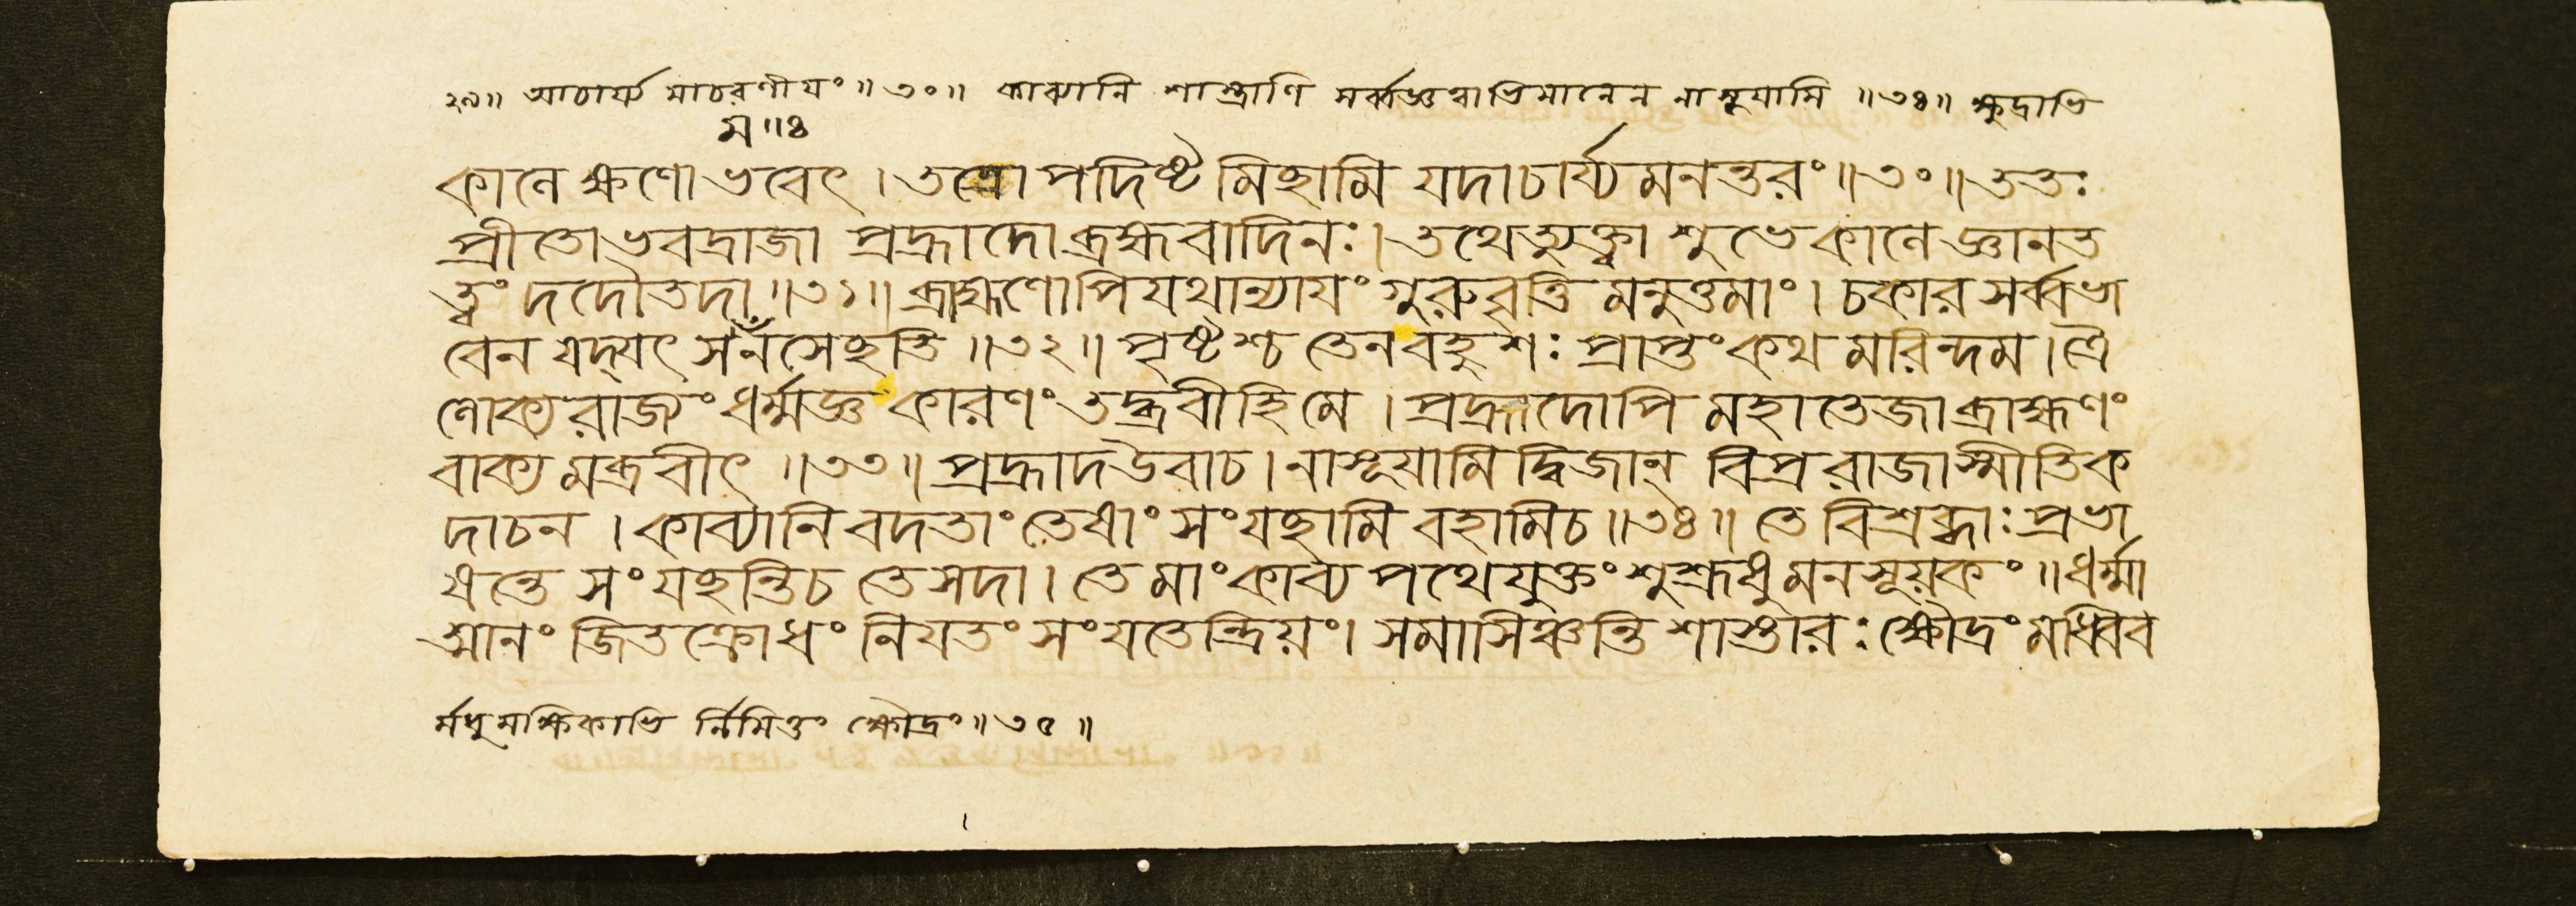 ২৯॥ আচার্য্য মাচরণীয়ং॥ ৩০॥ কাব্যানি শাস্ত্রাণি সর্ব্বজ্ঞত্বাভিমানেন নাসূয়ামি ॥৩৪॥ ক্ষুদ্রাভি
ম॥৪
কালে ক্ষণো ভবেৎ । তত্রোপদিষ্ট মিহামি যদাচার্য্য মনন্তরং॥৩০॥ ততঃ
প্রীতোভবদ্রাজা প্রহ্লাদো ব্রহ্মবাদিনঃ। তথেত্যুক্ত্বা শুভেকালে জ্ঞানত
ত্ত্বং দদৌতদা॥৩১॥ ব্রাহ্মণোপিযথান্যায়ং গুরুবৃত্তি মনুত্তমাং। চকার সর্ব্বভা
বেন যদ্যৎ সমঁসেহতি ॥৩২॥ পৃষ্টশ্চ তেনবহুশঃ প্রাপ্তং কথ মরিন্দম। ত্রৈ
লোক্য রাজ্যং ধর্ম্মজ্ঞ কারণং তদ্ব্রবীহিমে । প্রহ্লাদোপি মহাতেজা ব্রাহ্মণং
বাক্য মব্রবীৎ ॥৩৩॥ প্রহ্লাদউবাচ। নাসূয়ামিদ্বিজান্ বিপ্র রাজাস্মীতিক
দাচন । কাব্যানি বদতাং তেষাং সংযহামি বহামিচ॥৩৪॥ তে বিশ্রব্ধাঃ প্রভা
ষন্তে সংযহন্তিচ তেসদা। তে মাং কাব্য পথেযুক্তং শুশ্রূষুমনসূয়কং॥ ধর্ম্মা
ত্মানং জিতক্রোধং নিযতং সংযতেন্দ্রিয়ং। সমাসিঞ্চন্তি শাস্তারঃ ক্ষৌদ্রং মধ্বিব
র্মধুমক্ষিকাভি র্নির্মিতং ক্ষৌদ্রং॥৩৫॥